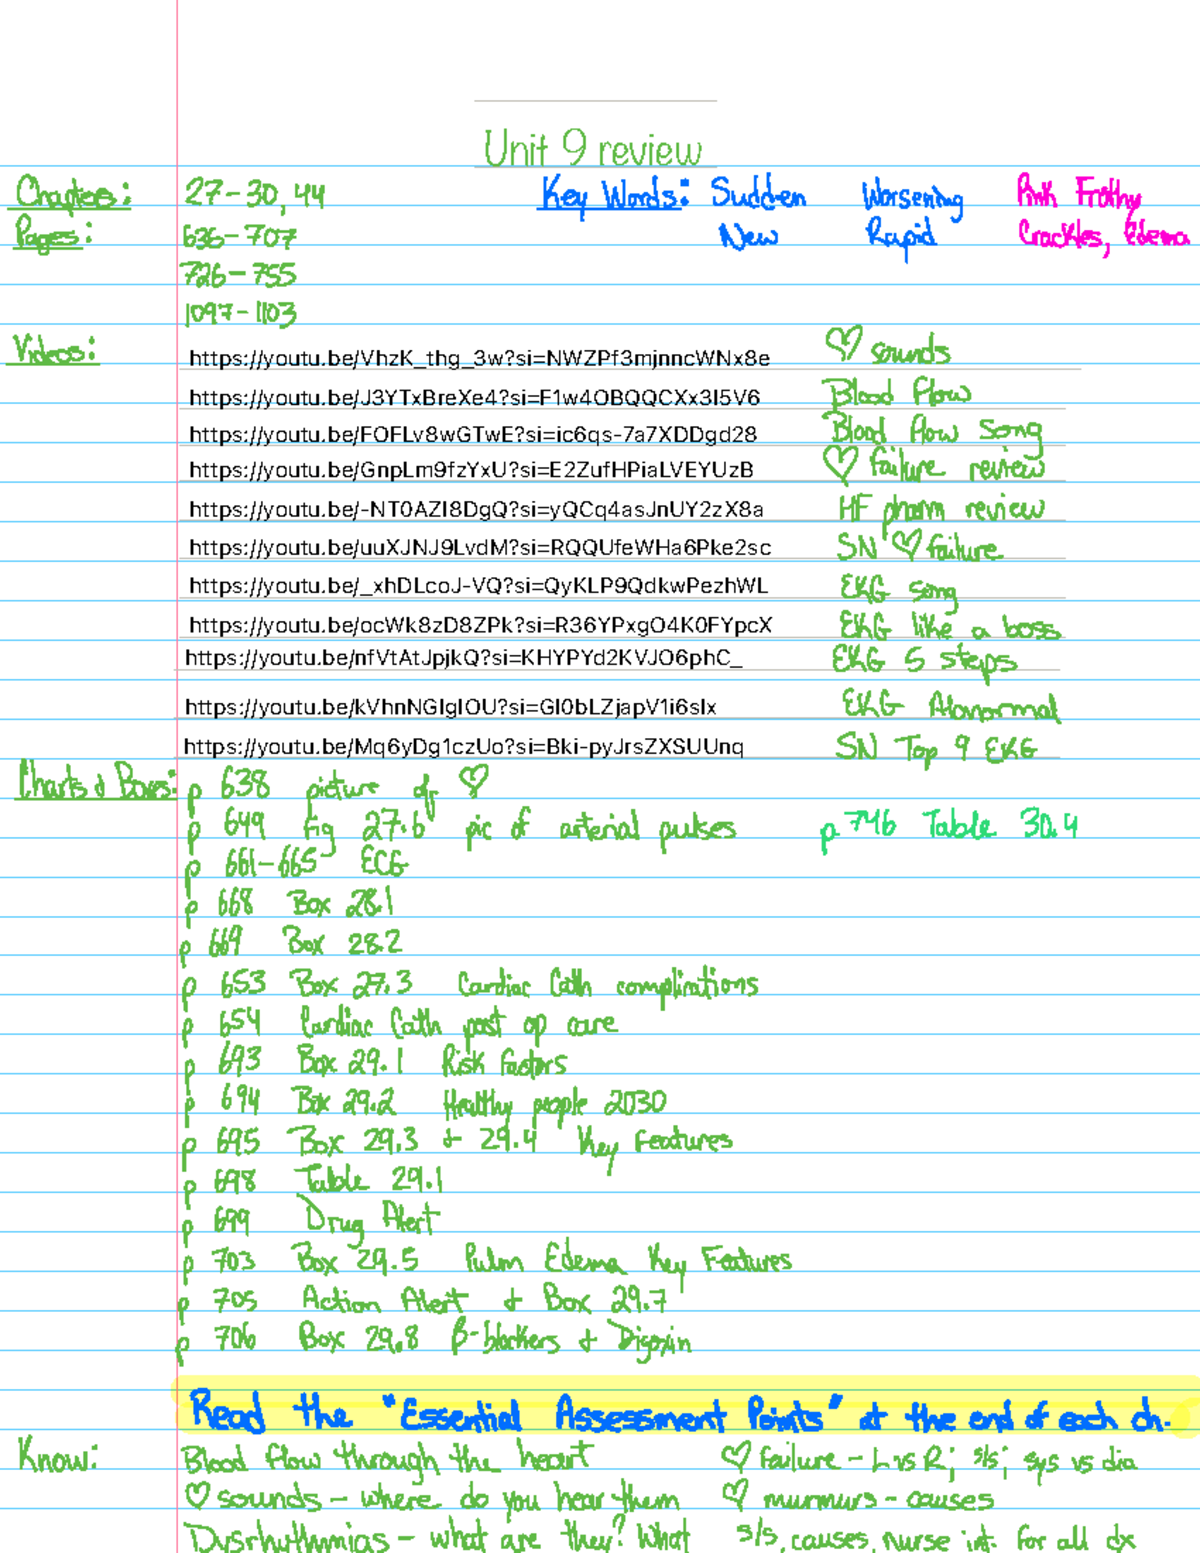 Unit 9 review
Chapters: 27-30, 44 Key Words: Sudden Worsening Pink Frothy
Pages: 636-707 New Rapid Crackles, Edema
726-755
1097-1103
Videos: https://youtu.be/VhzK_thg_3w?si=NWZPf3mjnncWNx8e ♡ sounds
https://youtu.be/J3YTxBreXe4?si=F1w4OBQQCXx3I5V6 Blood Flow
https://youtu.be/FOFLv8wGTwE?si=ic6qs-7a7XDDgd28 Blood flow Song
https://youtu.be/GnpLm9fzYxU?si=E2ZufHPiaLVEYUzB ♡ failure review
https://youtu.be/-NT0AZI8DgQ?si=yQCq4asJnUY2zX8a HF pharm review
https://youtu.be/uuXJNJ9LvdM?si=RQQUfeWHa6Pke2sc SN ♡ failure
https://youtu.be/_xhDLcoJ-VQ?si=QyKLP9QdkwPezhWL EKG song
https://youtu.be/ocWk8zD8ZPk?si=R36YPxgO4K0FYpcX EKG like a boss
https://youtu.be/nfVtAtJpjkQ?si=KHYPYd2KVJO6phC_ EKG 5 steps
https://youtu.be/kVhnNGIgIOU?si=GI0bLZjapV1i6sIx EKG Abnormal
https://youtu.be/Mq6yDg1czUo?si=Bki-pyJrsZXSUUnq SN Top 9 EKG
Charts & Boxes: p 638 picture of ♡
p 649 Fig 27.6 pic of arterial pulses p 746 Table 30.4
p 661-665 ECG
p 668 Box 28.1
p 669 Box 28.2
p 653 Box 27.3 Cardiac Cath complications
p 654 Cardiac Cath post op care
p 693 Box 29.1 Risk Factors
p 694 Box 29.2 Healthy people 2030
p 695 Box 29.3 & 29.4 Key Features
p 698 Table 29.1
p 699 Drug Alert
p 703 Box 29.5 Pulm Edema Key Features
p 705 Action Alert & Box 29.7
p 706 Box 29.8 β-blockers & Digoxin
Read the "Essential Assessment Points" at the end of each ch.
Know: Blood flow through the heart ♡ failure - L vs R; s/s; sys vs dia
♡ sounds - where do you hear them ♡ murmurs - causes
Dysrhythmias - what are they? What s/s, causes, nurse int. for all dx